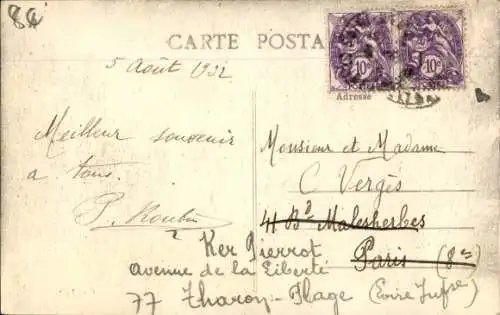 8€
CARTE POSTA
10c 10c
5 août 1932
Adresse
Meilleur souvenir
a tous.
P. Roubin
Monsieur et Madame
C Vergès
41 Bd Malesherbes
Paris (8e)
Ker Pierrot
avenue de la Liberté
77 Tharon-Plage (Loire Infre)